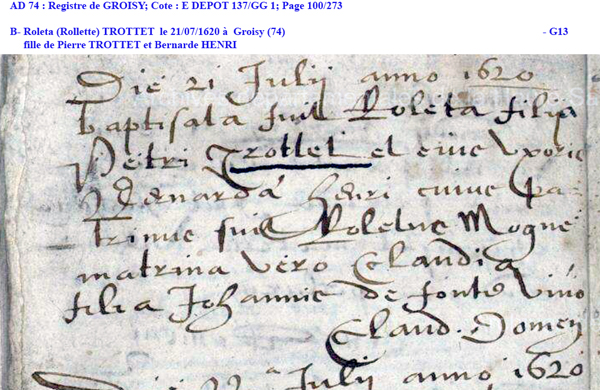 AD 74 : Registre de GROISY; Cote : E DEPOT 137/GG 1; Page 100/273
B- Roleta (Rollette) TROTTET le 21/07/1620 à Groisy (74) - G13
fille de Pierre TROTTET et Bernarde HENRI
Die 21 Julij anno 1620
baptisata fuit Roleta filia
Petri Trottet et eius uxoris
Bernarda henri cuius pa-
trinus fuit Roletus Mogne
matrina vero Claudia
filia Johannis de fonte vivo
Claud. Domen
Die Julij anno 1620